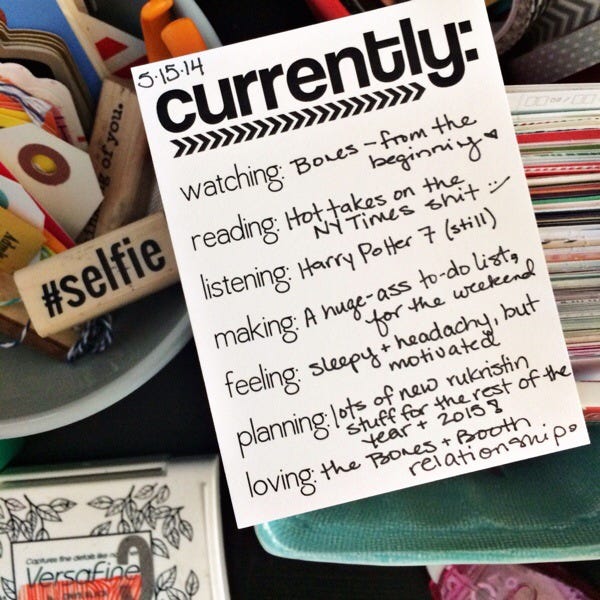 5-15-14
currently:
watching: Bones - from the
beginning ♥
reading: Hot takes on the
NYTimes shit :/
listening: Harry Potter 7 (still)
making: A huge-ass to-do list,
for the weekend
feeling: sleepy + headachy, but
motivated
planning: lots of new rukristin
stuff for the rest of the
year + 2015!
loving: the Bones + Booth
relationship.
g of you.
#selfie
Captures fine details like no
VersaFine